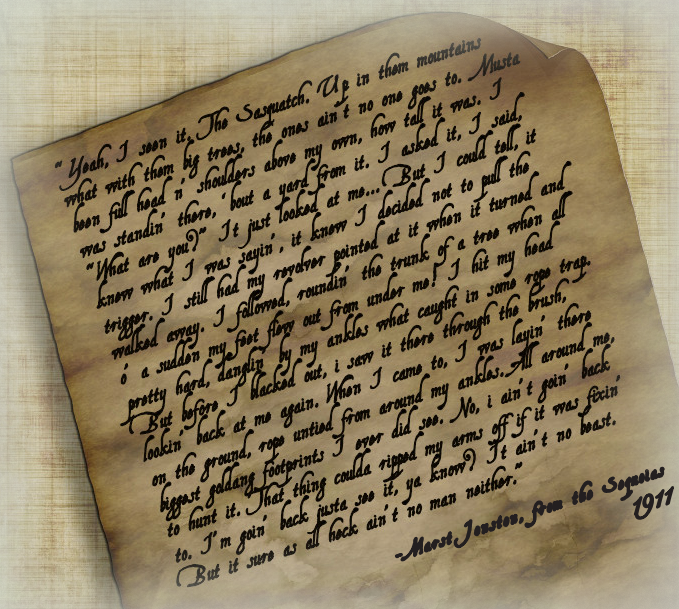 "Yeah, I seen it. The Sasquatch. Up in them mountains
what with them big trees, the ones ain't no one goes to. Musta
been full head n' shoulders above my own, how tall it was. I
was standin' there, 'bout a yard from it. I asked it, I said,
"What are you?" It just looked at me... But I could tell, it
knew what I was sayin', it knew I decided not to pull the
trigger. I still had my revolver pointed at it when it turned and
walked away. I followed, roundin' the trunk of a tree when all
o' a sudden my feet flew out from under me! I hit my head
pretty hard, danglin' by my ankles what caught in some rope trap.
But before I blacked out, i saw it there through the brush,
lookin' back at me again. When I came to, I was layin' there
on the ground, rope untied from around my ankles. All around me,
biggest goldang footprints I ever did see. No, i ain't goin' back
to hunt it. That thing coulda ripped my arms off if it was fixin'
to. I'm goin' back justa see it, ya know? It ain't no beast.
But it sure as all heck ain't no man neither."
-Marst Jouston, from the Sequoias
1911